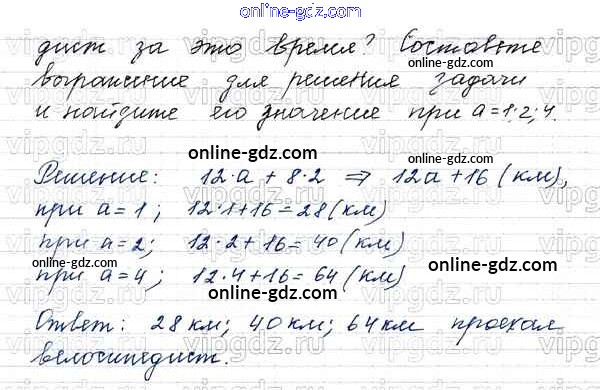 online-gdz.com
дист за это время? Составьте
выражение для решения задачи
и найдите его значение при a=1; 2; 4.
online-gdz.com
Решение: 12·a + 8·2 ⇒ 12a+16 (км),
при a=1; 12·1+16=28 (км)
при a=2; 12·2+16=40 (км)
при a=4; 12·4+16=64 (км)
Ответ: 28 км; 40 км; 64 км проехал
велосипедист.
online-gdz.com
online-gdz.com
online-gdz.com
online-gdz.com
online-gdz.com
online-gdz.com
online-gdz.com